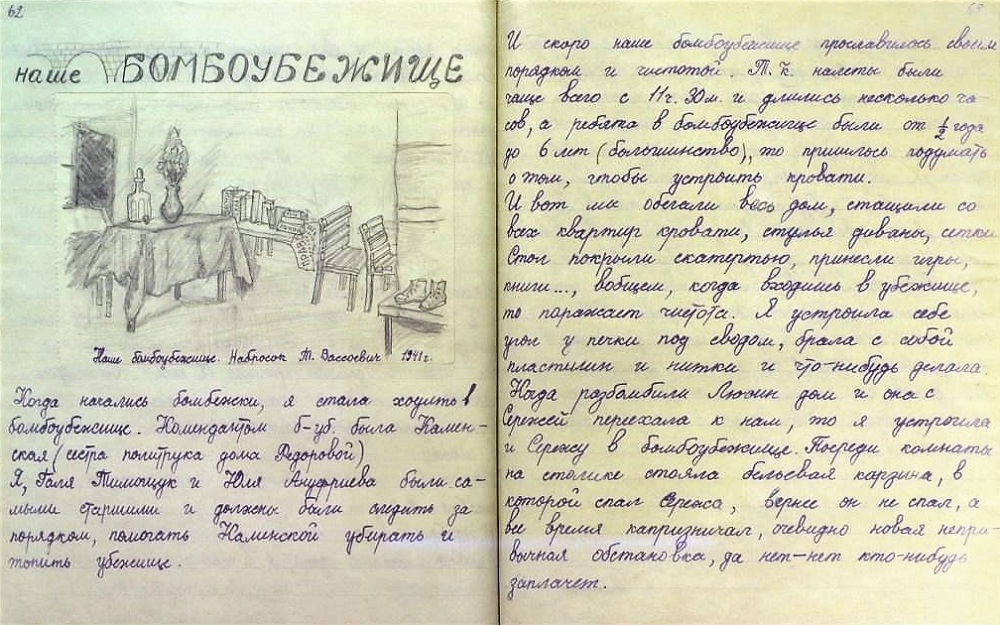 62
наше БОМБОУБЕЖИЩЕ
Наше бомбоубежище. Набросок Т. Вассоевич 1941г.
Когда начались бомбежки, я стала ходить в
бомбоубежище. Комендантом б-уб. была Камен-
ская (сестра политрука дома Федоровой)
Я, Галя Тимощук и Юля Ануфриева были са-
мыми старшими и должны были следить за
порядком, помогать Каминской убирать и
топить убежище.
63
И скоро наше бомбоубежище прославилось своим
порядком и чистотой. Т.к. налеты были
чаще всего с 11ч. 30м. и длились несколько ча-
сов, а ребята в бомбоубежище были от ½ года
до 6 лет (большинство), то пришлось подумать
о том, чтобы устроить кровати.
И вот мы обегали весь дом, стащили со
всех квартир кровати, стулья диваны, сетки
Стол покрыли скатертью, принесли игры,
книги..., вобщем, когда входишь в убежище,
то поражает чистота. Я устроила себе
угол у печки под сводом, брала с собой
пластилин и нитки и что-нибудь делала.
Когда разбомбили Люсин дом и она с
Сережей переехала к нам, то я устроила
и Сережу в бомбоубежище. Посреди комнаты
на столике стояла бельевая карзина, в
которой спал Сережа, вернее он не спал, а
все время капризничал, очевидно новая непри-
вычная обстановка, да нет-нет кто-нибудь
заплачет.